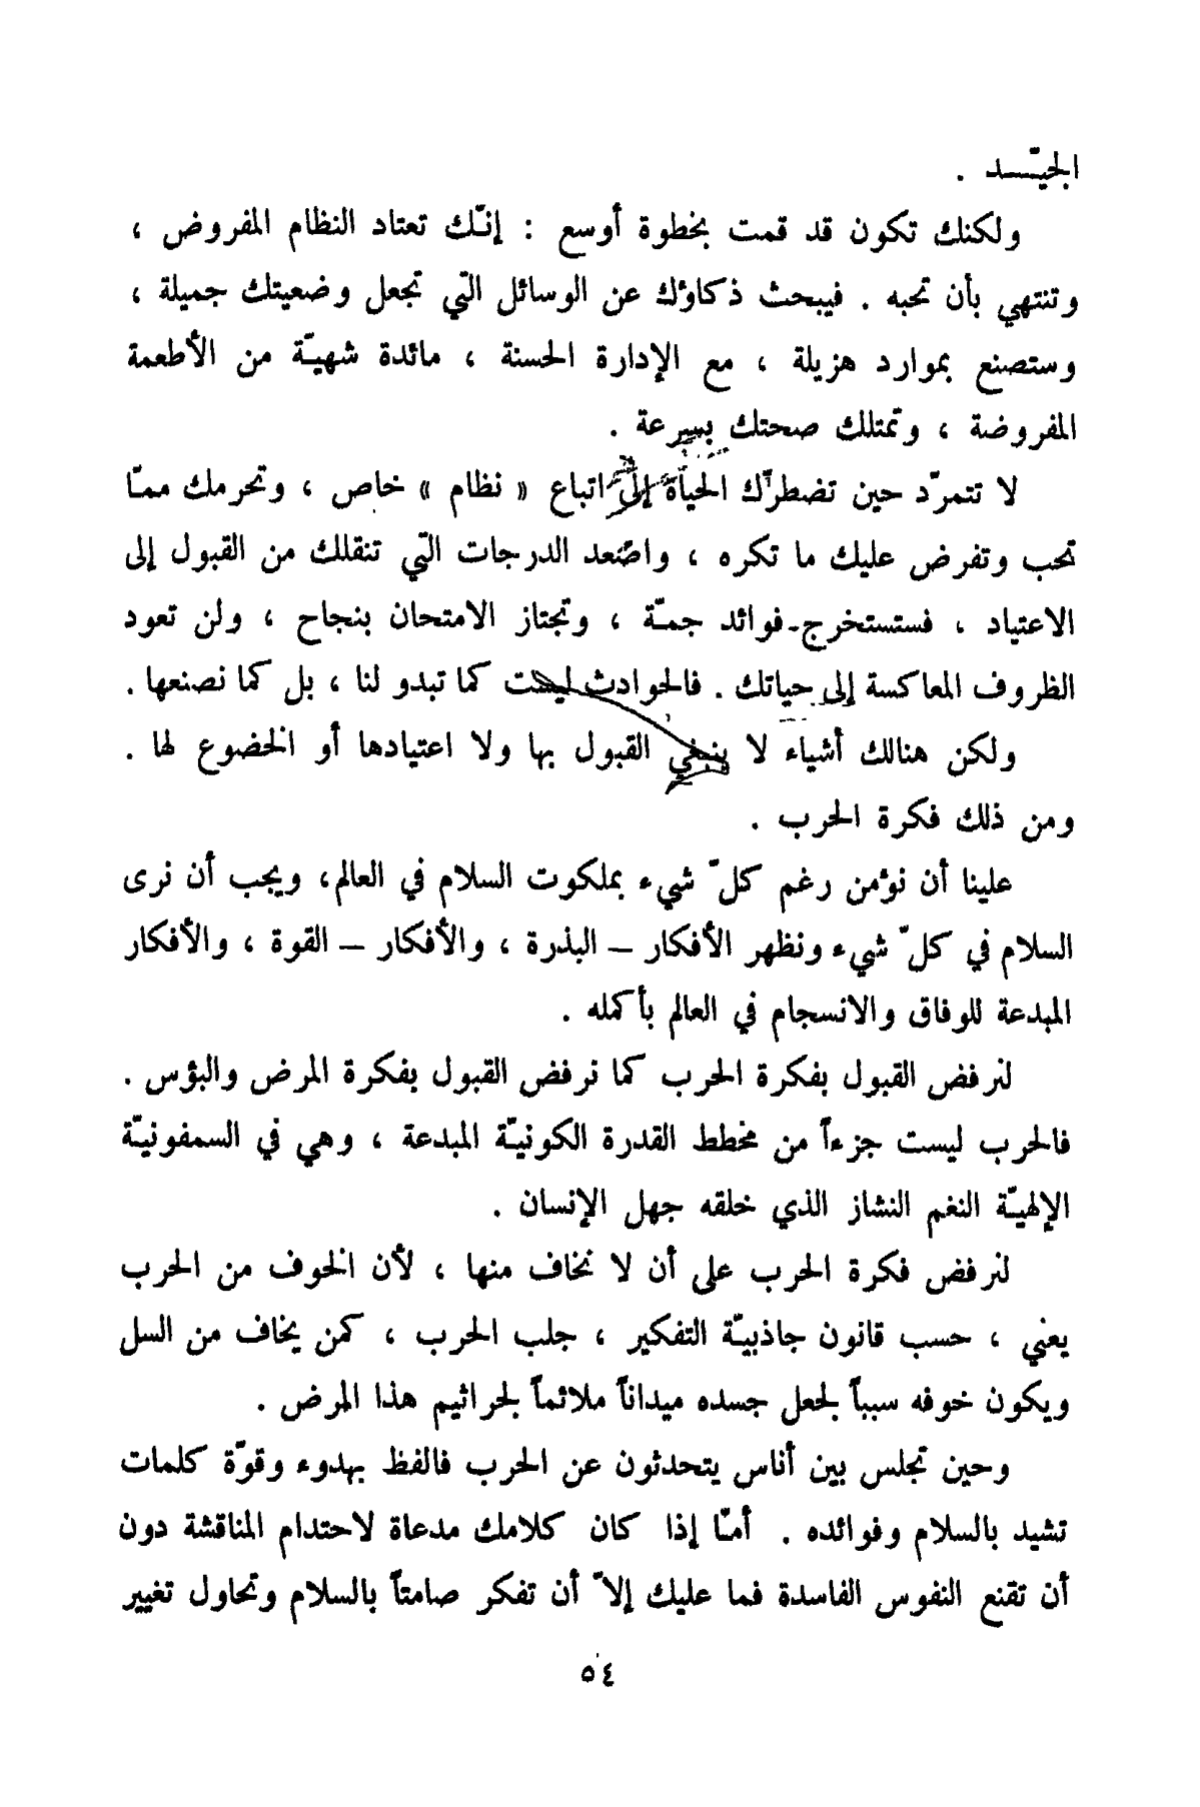 الجيّــد .
ولكنك تكون قد قمت بخطوة أوسع : إنّك تعتاد النظام المفروض ،
وتنتهي بأن تحبه . فيبحث ذكاؤك عن الوسائل التي تجعل وضعيتك جميلة ،
وستصنع بموارد هزيلة ، مع الإدارة الحسنة ، مائدة شهيّة من الأطعمة
المفروضة ، وتمتلك صحتك بسرعة .
لا تتمرّد حين تضطرّك الحياة إلى اتباع « نظام » خاص ، وتحرمك ممّا
تحب وتفرض عليك ما تكره ، واصعد الدرجات التي تنقلك من القبول إلى
الاعتياد ، فستستخرج فوائد جمّة ، وتجتاز الامتحان بنجاح ، ولن تعود
الظروف المعاكسة إلى حياتك . فالحوادث ليست كما تبدو لنا ، بل كما نصنعها .
ولكن هنالك أشياء لا ينبغي القبول بها ولا اعتيادها أو الخضوع لها .
ومن ذلك فكرة الحرب .
علينا أن نؤمن رغم كلّ شيء بملكوت السلام في العالم، ويجب أن نرى
السلام في كلّ شيء ونظهر الأفكار – البذرة ، والأفكار – القوة ، والأفكار
المبدعة للوفاق والانسجام في العالم بأكمله .
لنرفض القبول بفكرة الحرب كما نرفض القبول بفكرة المرض والبؤس .
فالحرب ليست جزءاً من مخطط القدرة الكونيّة المبدعة ، وهي في السمفونيّة
الإلهيّة النغم النشاز الذي خلقه جهل الإنسان .
لنرفض فكرة الحرب على أن لا نخاف منها ، لأن الخوف من الحرب
يعني ، حسب قانون جاذبيّة التفكير ، جلب الحرب ، كمن يخاف من السل
ويكون خوفه سبباً لجعل جسده ميداناً ملائماً لجراثيم هذا المرض .
وحين تجلس بين أناس يتحدثون عن الحرب فالفظ بهدوء وقوّة كلمات
تشيد بالسلام وفوائده . أمّا إذا كان كلامك مدعاة لاحتدام المناقشة دون
أن تقنع النفوس الفاسدة فما عليك إلاّ أن تفكر صامتاً بالسلام وتحاول تغيير
٥٤